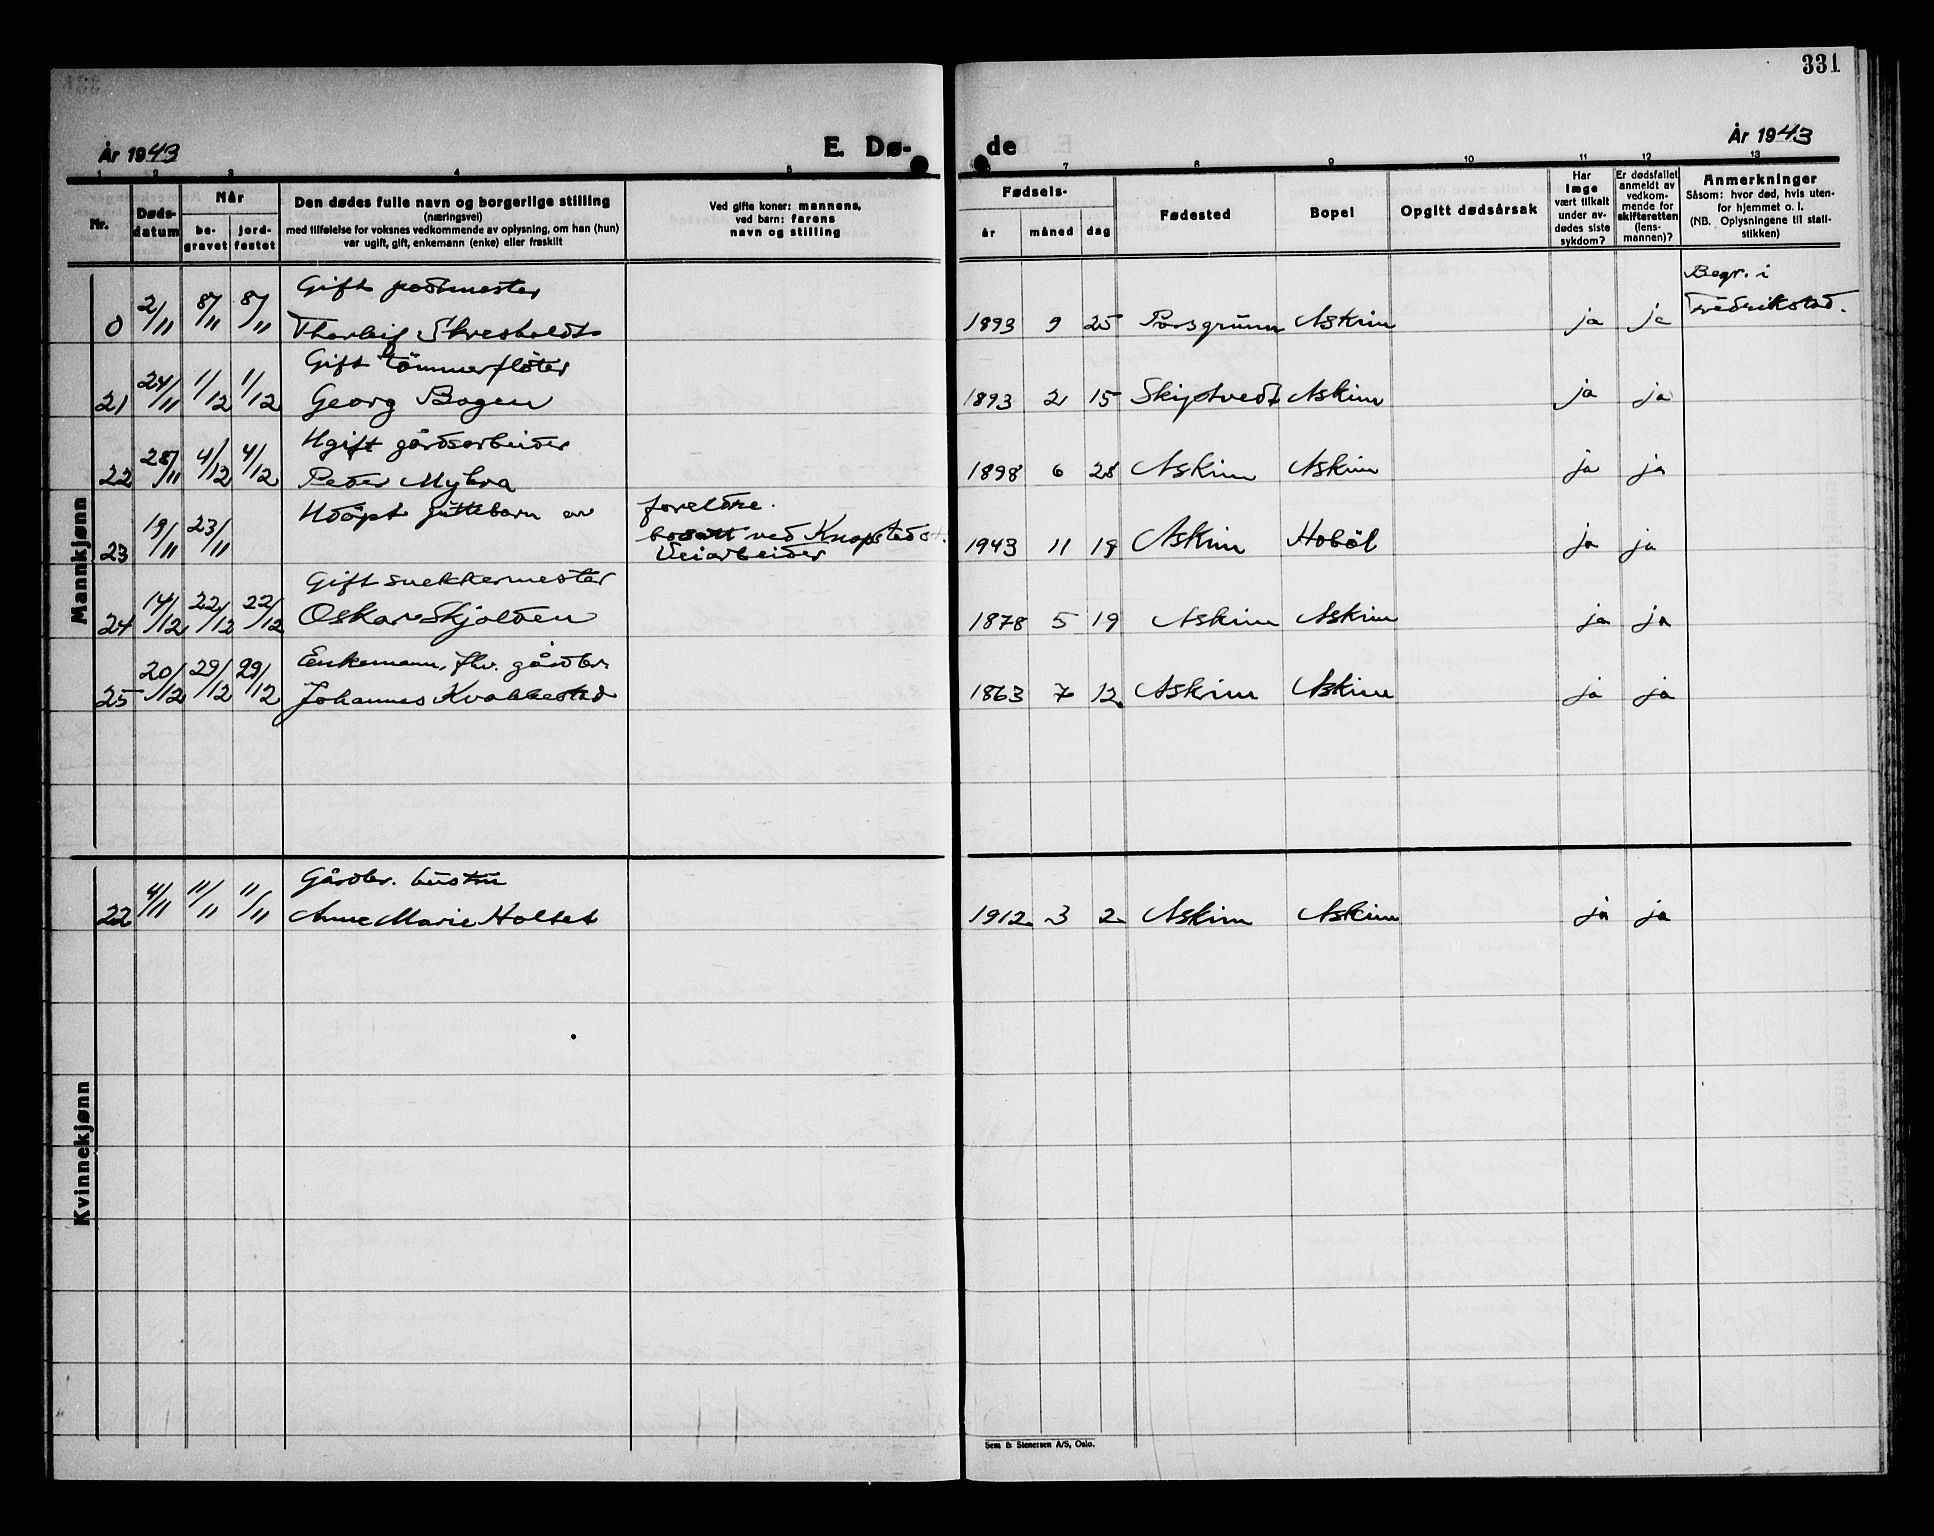 331
År 1943
E. Dø-
de
År 1943
1 2 3 4 5 7 8 9 10 11 12 13
Nr.
Døds-
datum
Når
be-
gravet
jord-
festet
Den dødes fulle navn og borgerlige stilling
(næringsvei)
med tilføielse for voksnes vedkommende av oplysning, om han (hun)
var ugift, gift, enkemann (enke) eller fraskilt
Ved gifte koner: mannens,
ved barn: farens
navn og stilling
Fødsels-
år måned dag
Fødested
Bopel
Opgitt dødsårsak
Har
læge
vært tilkalt
under av-
dødes siste
sykdom?
Er dødsfallet
anmeldt av
vedkom-
mende for
skifteretten
(lens-
mannen)?
Anmerkninger
Såsom: hvor død, hvis uten-
for hjemmet o. l.
(NB. Oplysningene til stati-
stikken)
Mannkjønn
Gift postmester
0 2/11 8/11 8/11 Thorleif 1893 9 25 Porsgrunn Askim ja ja
Begr. i
Fredrikstad.
Gift tömmerflöter
21 24/11 1/12 1/12 Georg Bogen 1893 2 15 Skiptvedt Askim ja ja
Ugift gårdsarbeider
22 28/11 4/12 4/12 Peder Myhra 1898 6 28 Askim Askim ja ja
23 19/11 23/11 Udöpt guttebarn av foreldre.
bosatt ved Knapstad st.
Veiarbeider
1943 11 19 Askim Hobøl ja ja
Gift snekkermester
24 14/12 22/12 22/12 Oskar Skjolden 1878 5 19 Askim Askim ja ja
Enkemann, fhv. gårdbr.
25 20/12 29/12 29/12 Johannes Kvakkestad 1863 7 12 Askim Askim ja ja
Kvinnekjønn
Gårdbr. hustru
22 4/11 11/11 11/11 Anne Marie Holtet 1912 3 2 Askim Askim ja ja
Sem & Stenersen A/S, Oslo.